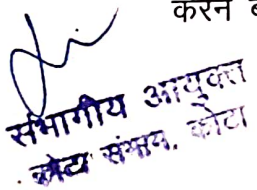 करने ब
संभागीय आयुक्त
कोटा संभाग, कोटा